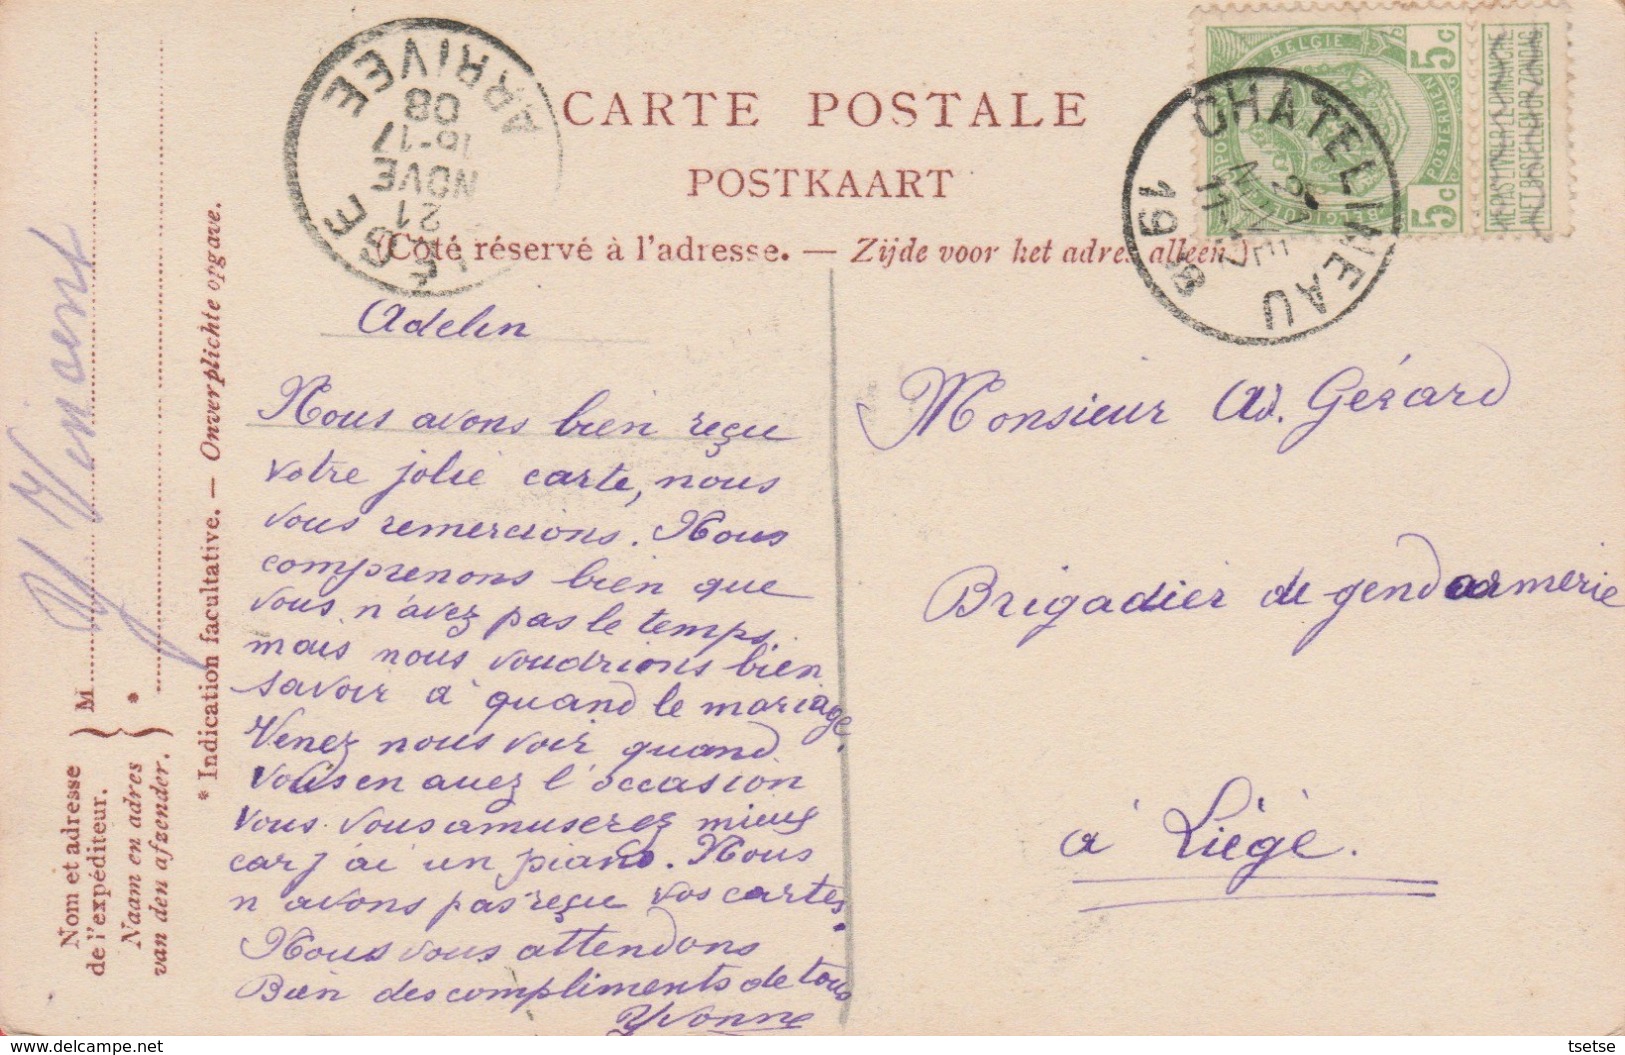 CARTE POSTALE
POSTKAART
(Côté réservé à l'adresse. — Zijde voor het adres alleen.)
ARRIVÉE
08
16-17
NOVE
21
LIEGE
CHATELINEAU
1908
BELGIE
5c
5c
POSTERIJEN
NE PAS LIVRER LE DIMANCHE
NIET BESTELLEN OP ZONDAG
Adelin
Nous avons bien reçu
votre jolie carte, nous
vous remercions. Nous
comprenons bien que
vous n'avez pas le temps.
mais nous voudrions bien
savoir à quand le mariage.
Venez nous voir quand
vous en avez l'occasion
vous vous amuserez mieux
car j'ai un piano. Nous
n'avons pas reçu vos cartes.
Nous vous attendons
Bien des compliments de tous
Yvonne
Monsieur Ad. Gérard
Brigadier de gendarmerie
à Liégé.
Nom et adresse
de l'expéditeur.
Naam en adres
van den afzender.
} M
} *
* Indication facultative. — Onverplichte opgave.
Y Vincent
tsetse